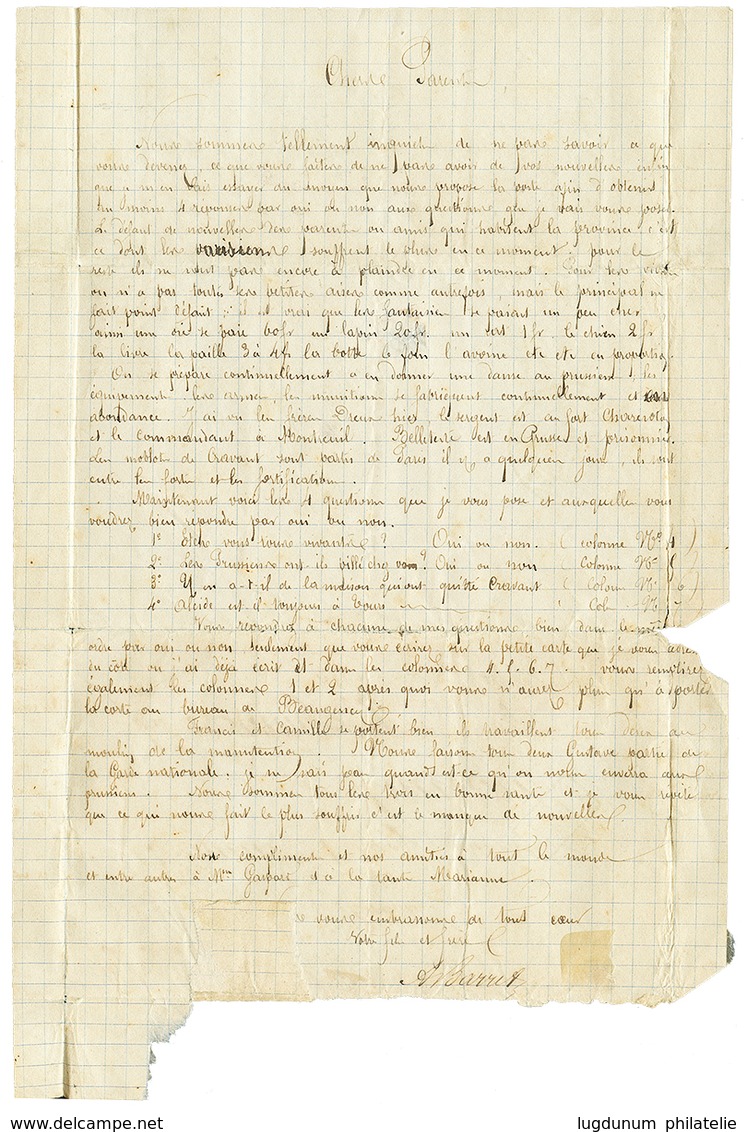 Chers Parents
Nous sommes tellement inquiets de ne pas savoir ce que
vous devenez, ce que vous faites de ne pas avoir de vos nouvelles enfin
que je m'en vais essayer du moyen que nous propose la poste afin d'obtenir
au moins 4 réponses par oui ou non aux questions que je vais vous poser.
Le défaut de nouvelles des parents ou amis qui habitent la province c'est
ce dont les parisiens souffrent le plus en ce moment. pour le
reste ils ne sont pas encore à plaindre en ce moment. Pour les vivres
on n'a pas toutes ses petites aises comme autrefois, mais le principal ne
fait point défaut. il est vrai que les fantaisies se paient un peu cher
ainsi une oie se paie 60fr un lapin 20fr, un rat 1fr. le chien 2fr.
la livre la paille 3 à 4f la botte le foin l'avoine etc etc en proportion.
On se prépare continuellement à en donner une danse aux prussiens, les
équipements, les armes, les munitions se fabriquent continuellement et en
abondance. J'ai vu les frères Dreux hier le sergent est au fort Charenton
et le commandant à Montreuil. Belleterre est en Prusse et prisonnier.
Les moblots de Cravant sont partis de Paris il y a quelques jours, ils sont
entre les forts et les fortifications.
Maintenant voici les 4 questions que je vous pose et auxquelles vous
voudrez bien répondre par oui ou non.
1° Etes vous tous vivants ? Oui ou non. ( colonne N° 4 )
2° Les Prussiens ont-ils pillé chez vous? Oui ou non ( Colonne N° 5
3° Y en a-t-il de la maison qui ont quitté Cravant ( Colonn N° 6 )
4° Alcide est-il toujours à Tours ( Col N° 7 )
Vous répondrez à chacune de mes questions bien dans le même
ordre par oui ou non seulement que vous écrirez sur la petite carte que je vous adresse
du côté où j'ai déjà écrit et dans les colonnes 4. 5. 6. 7. vous remplirez
également les colonnes 1 et 2 après quoi vous n'aurez plus qu'à porter
la carte au bureau de Beaugency.
Francis et Camille se portent bien ils travaillent tous deux au
moulin de la manutention. Nous faisons tous deux Gustave partie de
la Garde nationale. je ne sais pas quand est-ce qu'on nous enverra aux
prussiens. Nous sommes tous les trois en bonne santé et je vous répète
que ce qui nous fait le plus souffrir c'est le manque de nouvelles.
Nos compliments et nos amitiés à tout le monde
et entre autres à Mme Gaspard et à la tante Marianne.
vous embrassons de tout cœur
Votre fils et frère
A Barret
lugdunum philatelie